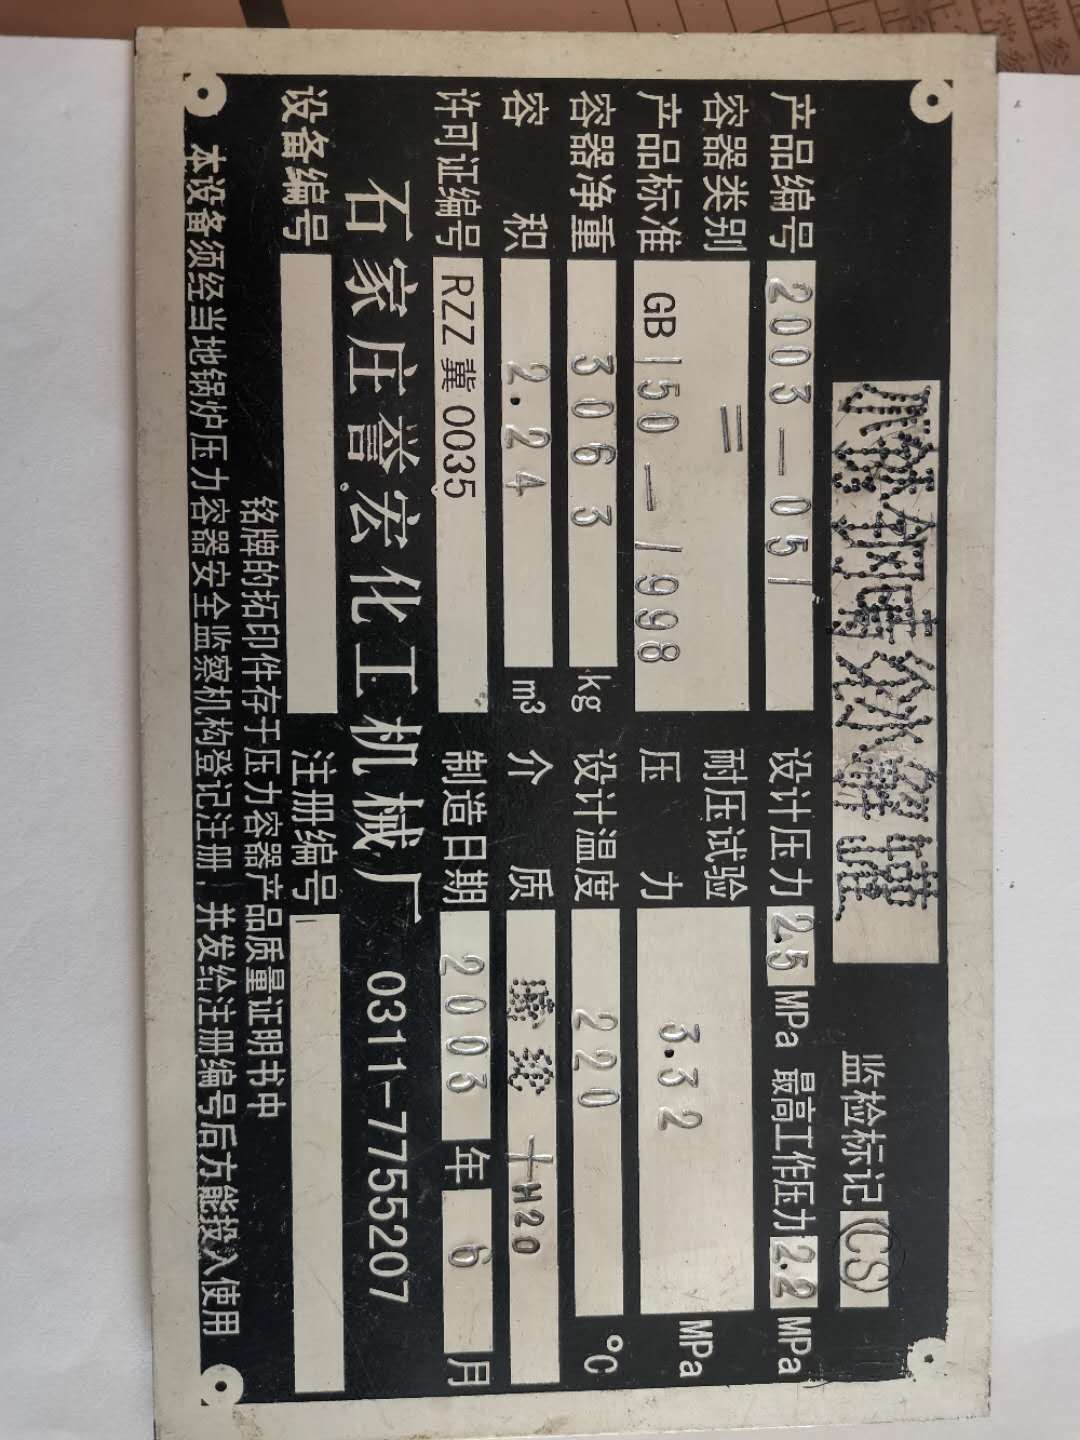 监检标记 (CS)
产品编号 2003-051 设计压力 2.5 MPa 最高工作压力 2.2 MPa
容器类别 二 耐压试验
产品标准 GB150-1998 压力 3.32 MPa
容器净重 3063 kg 设计温度 220 ℃
容积 2.24 m³ 介质 +H2O
许可证编号 RZZ冀0035 制造日期 2003 年 6 月
石家庄誉宏化工机械厂 0311-7755207
设备编号 注册编号
铭牌的拓印件存于压力容器产品质量证明书中
本设备须经当地锅炉压力容器安全监察机构登记注册,并发给注册编号后方能投入使用